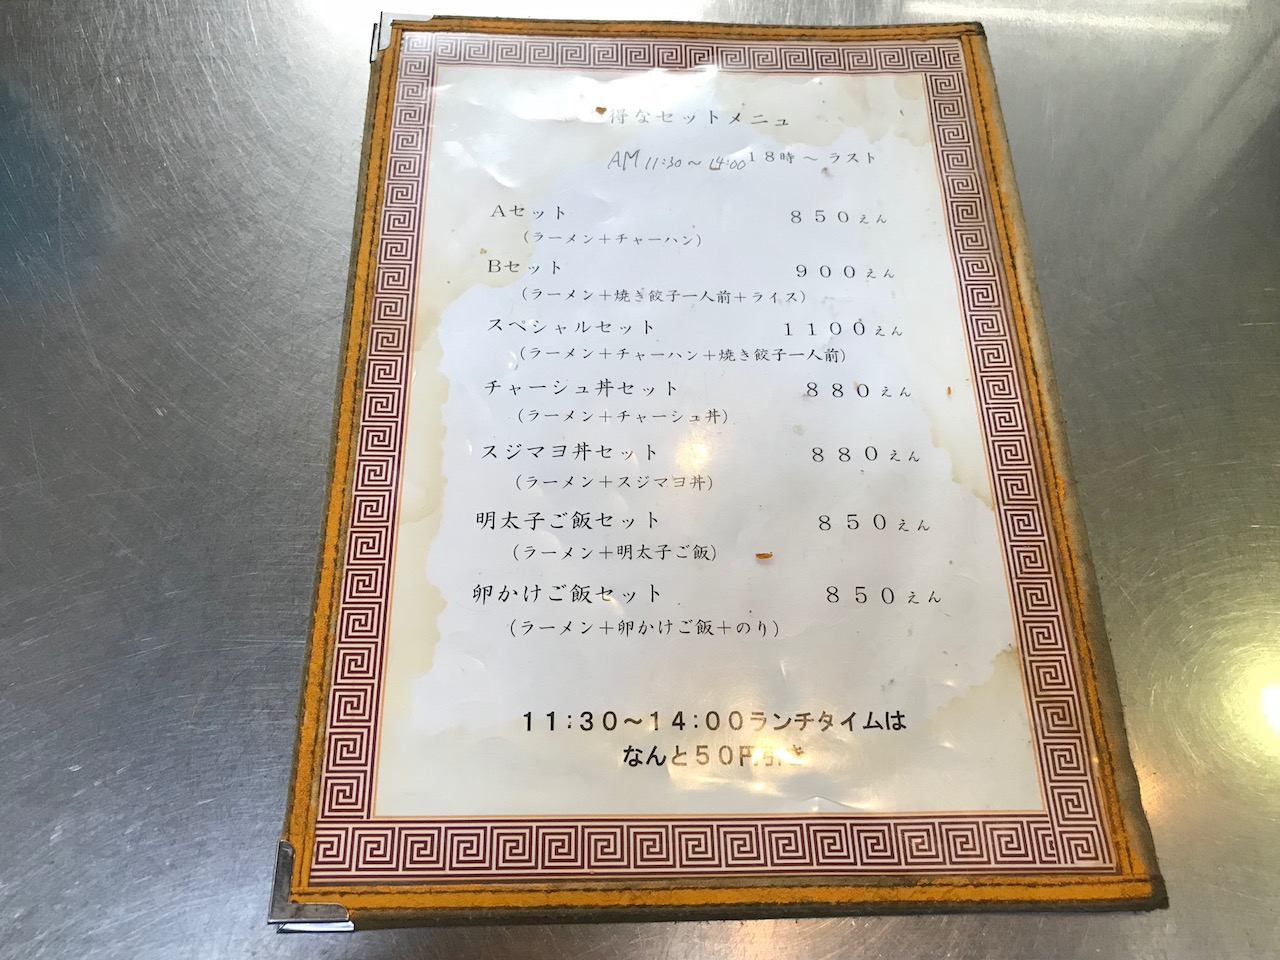 得なセットメニュ
AM 11:30～14:00 18時～ラスト
Aセット 850えん
（ラーメン＋チャーハン）
Bセット 900えん
（ラーメン＋焼き餃子一人前＋ライス）
スペシャルセット 1100えん
（ラーメン＋チャーハン＋焼き餃子一人前）
チャーシュ丼セット 880えん
（ラーメン＋チャーシュ丼）
スジマヨ丼セット 880えん
（ラーメン＋スジマヨ丼）
明太子ご飯セット 850えん
（ラーメン＋明太子ご飯）
卵かけご飯セット 850えん
（ラーメン＋卵かけご飯＋のり）
11:30～14:00ランチタイムは
なんと50円引き